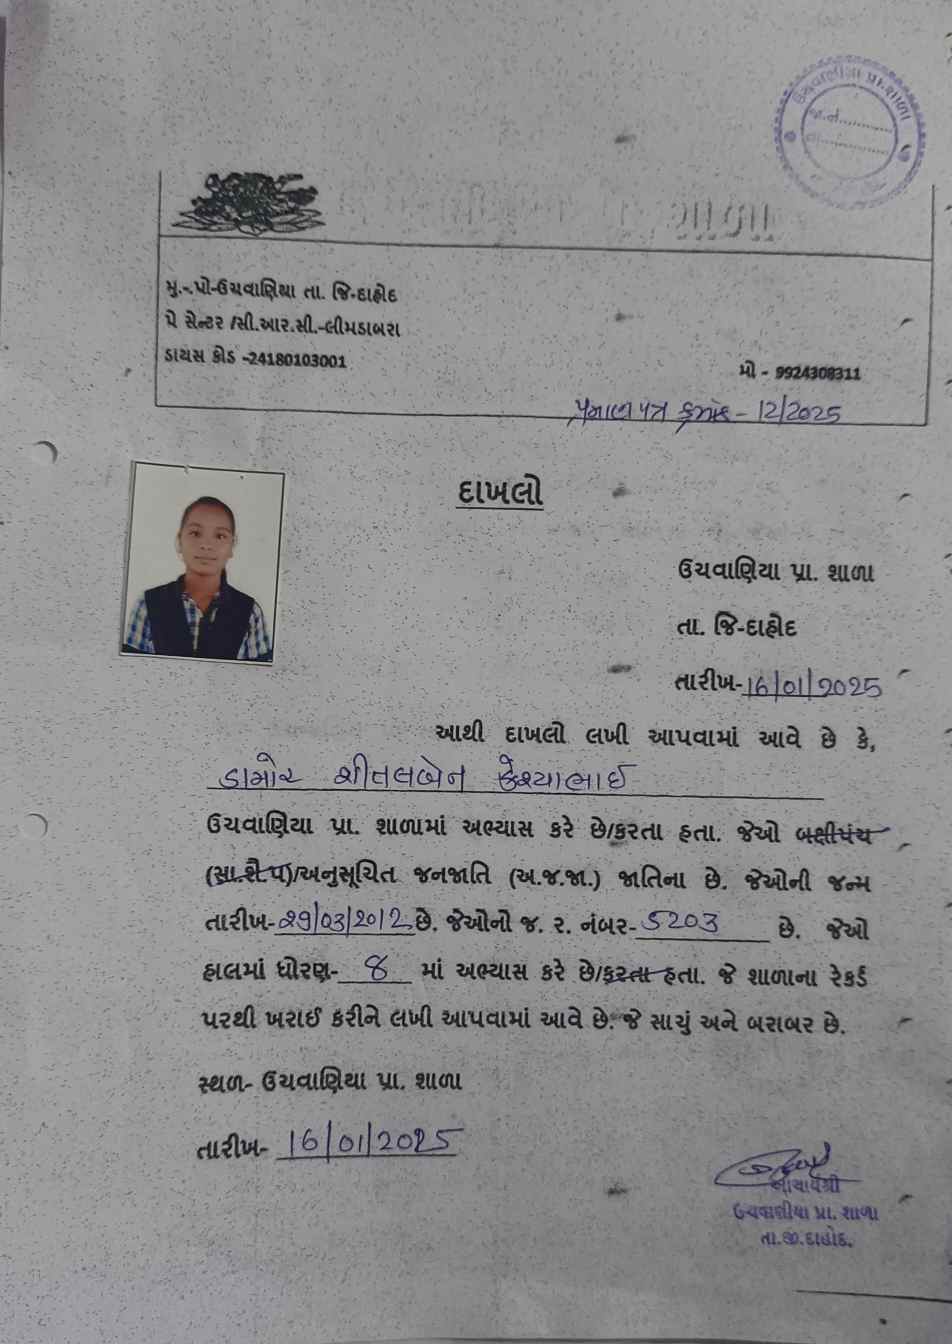 ઉચવાણીયા પ્રા.શાળા
જા.નં............
તા...............
શાળા
મુ.-.પો-ઉચવાણિયા તા. જિ-દાહોદ
પે સેન્ટર /સી.આર.સી.-લીમડાબરા
ડાયસ કોડ -24180103001
મો - 9924308311
પ્રમાણપત્ર ક્રમાંક - 12/2025
દાખલો
ઉચવાણિયા પ્રા. શાળા
તા. જિ-દાહોદ
તારીખ-16/01/2025
આથી દાખલો લખી આપવામાં આવે છે કે,
ડામોર શીતલબેન કેશ્યાભાઈ
ઉચવાણિયા પ્રા. શાળામાં અભ્યાસ કરે છે/કરતા હતા. જેઓ બક્ષીપંચ
(સા.શૈ.પ)/અનુસૂચિત જનજાતિ (અ.જ.જા.) જાતિના છે. જેઓની જન્મ
તારીખ-29/03/2012 છે. જેઓનો જ. ર. નંબર-5203 છે. જેઓ
હાલમાં ધોરણ-8 માં અભ્યાસ કરે છે/કરતા હતા. જે શાળાના રેકર્ડ
પરથી ખરાઈ કરીને લખી આપવામાં આવે છે. જે સાચું અને બરાબર છે.
સ્થળ- ઉચવાણિયા પ્રા. શાળા
તારીખ- 16/01/2025
આચાર્યશ્રી
ઉચવાણીયા પ્રા. શાળા
તા.જી.દાહોદ.